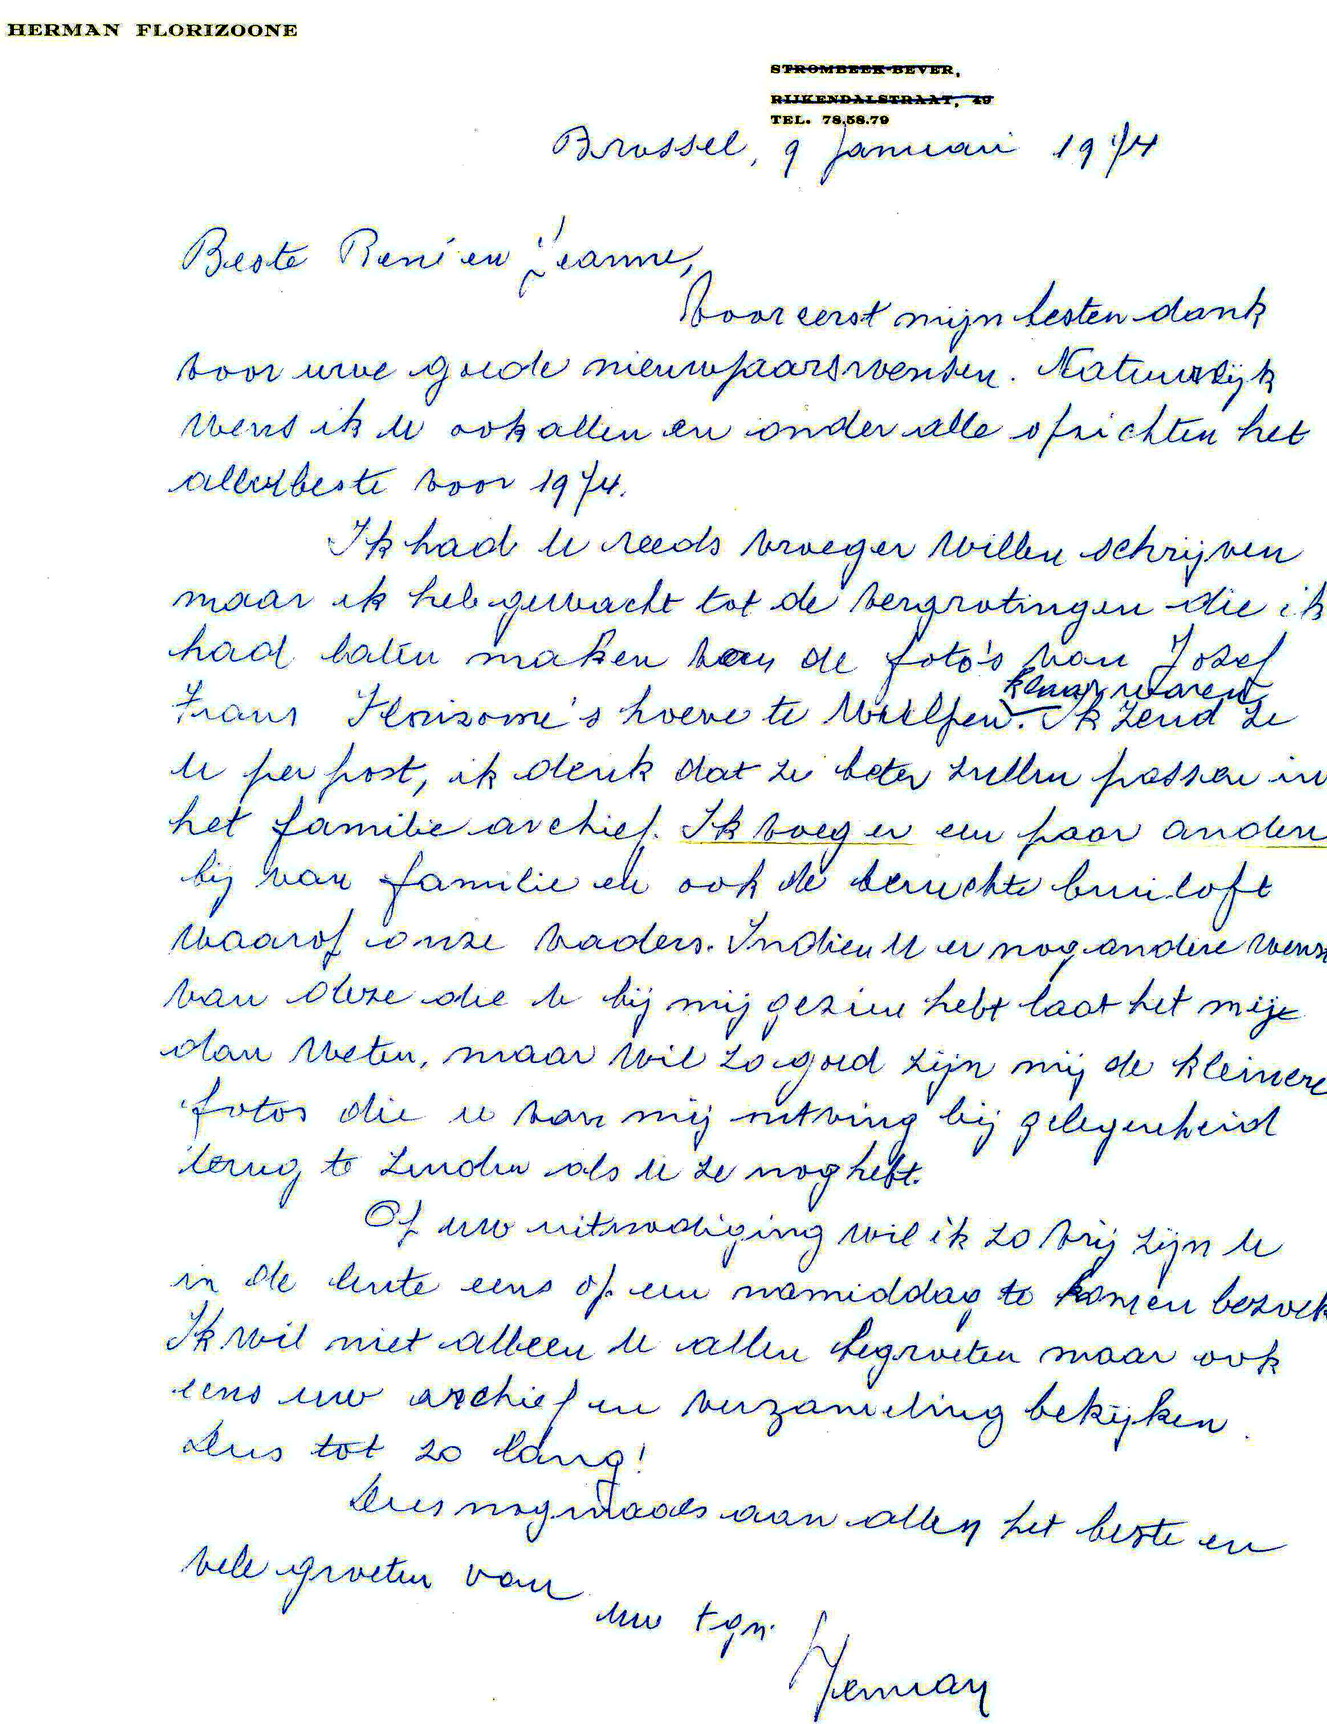 HERMAN FLORIZOONE
STROMBEEK-BEVER,
RIJKENDALSTRAAT, 49
TEL. 78.58.79
Brussel, 9 Januari 1974
Beste René en Jeanne,
Vooreerst mijn besten dank
voor uwe goede nieuwjaarswensen. Natuurlijk
wens ik u ook allen en onder alle opzichten het
allerbeste voor 1974.
Ik had u reeds vroeger willen schrijven
maar ik heb gewacht tot de vergrotingen die ik
had laten maken van de foto's van Jozef
klaar waren
Frans Florizoone's hoeve te Wulpen. Ik zend ze
u per post, ik denk dat ze beter zullen passen in
het familie archief. Ik voeg er een paar andere
bij van familie en ook de beruchte bruiloft
waarop onze vaders. Indien u er nog andere wens
van deze die u bij mij gezien hebt laat het mij
dan weten, maar wil zo goed zijn mij de kleinere
fotos die u van mij ontving bij gelegenheid
terug te zenden als u ze nog hebt.
Op uw uitnodiging wil ik zo vrij zijn u
in de lente eens op een namiddag te komen bezoek
Ik wil niet alleen u allen begroeten maar ook
eens uw archief en verzameling bekijken.
Dus tot zo lang!
Dus nogmaals aan allen het beste en
vele groeten van
uw tgn.
Herman